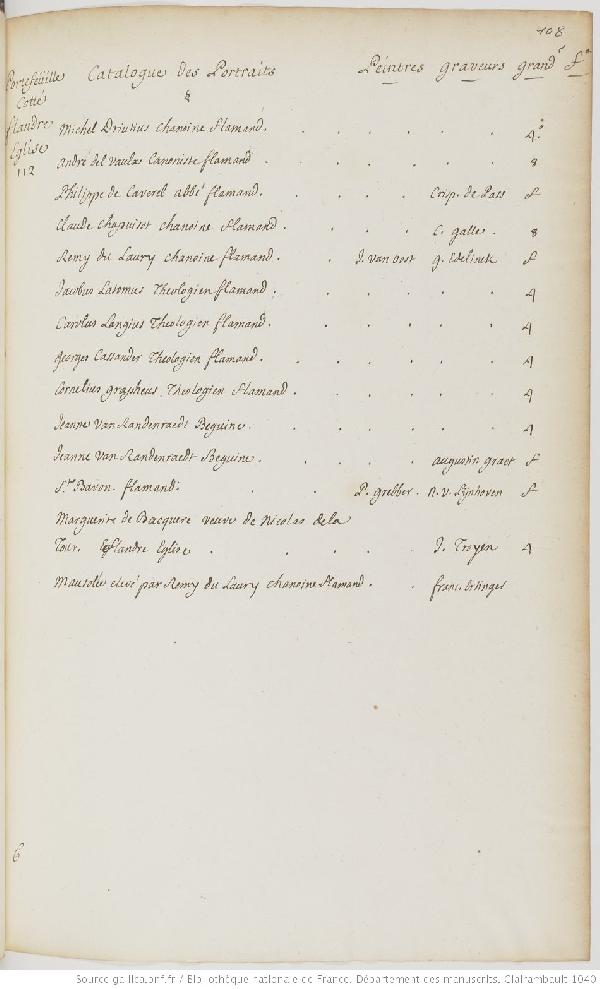 108
Portefeuille Cotté flandre Eglise 112
Catalogue des Portraits
Peintres graveurs grandr fo
8
Michel Driutius chanoine flamand. 4o
André del vaulx Canoniste flamand 8
Philippe de Caverel abbé flamand. Crisp. de Pass f
Claude Chapuisot chanoine flamand. C. galle. 8
Remy du Laury chanoine flamand. J. van oost g. Edelinck f
Jacobus Latomus Theologien flamand. 4
Carolus Langius Theologien flamand. 4
Georges Cassander Theologien flamand. 4
Cornelius grapheus Theologien flamand. 4
Jeanne Van Randenraedt Beguine. 4
Jeanne Van Randenraedt Beguine. augustin graet f
St Bavon flamand. P. grebber. n. v. Lynhoven f
Marguerite de Bacquere veuve de Nicolas de la
Tour. flandre Eglise. J. Troyen 4
Mausolée elevé par Remy du Laury chanoine flamand. franc. Ertinger
6
Source gallica.bnf.fr / Bibliothèque nationale de France. Département des manuscrits. Clairambault 1040